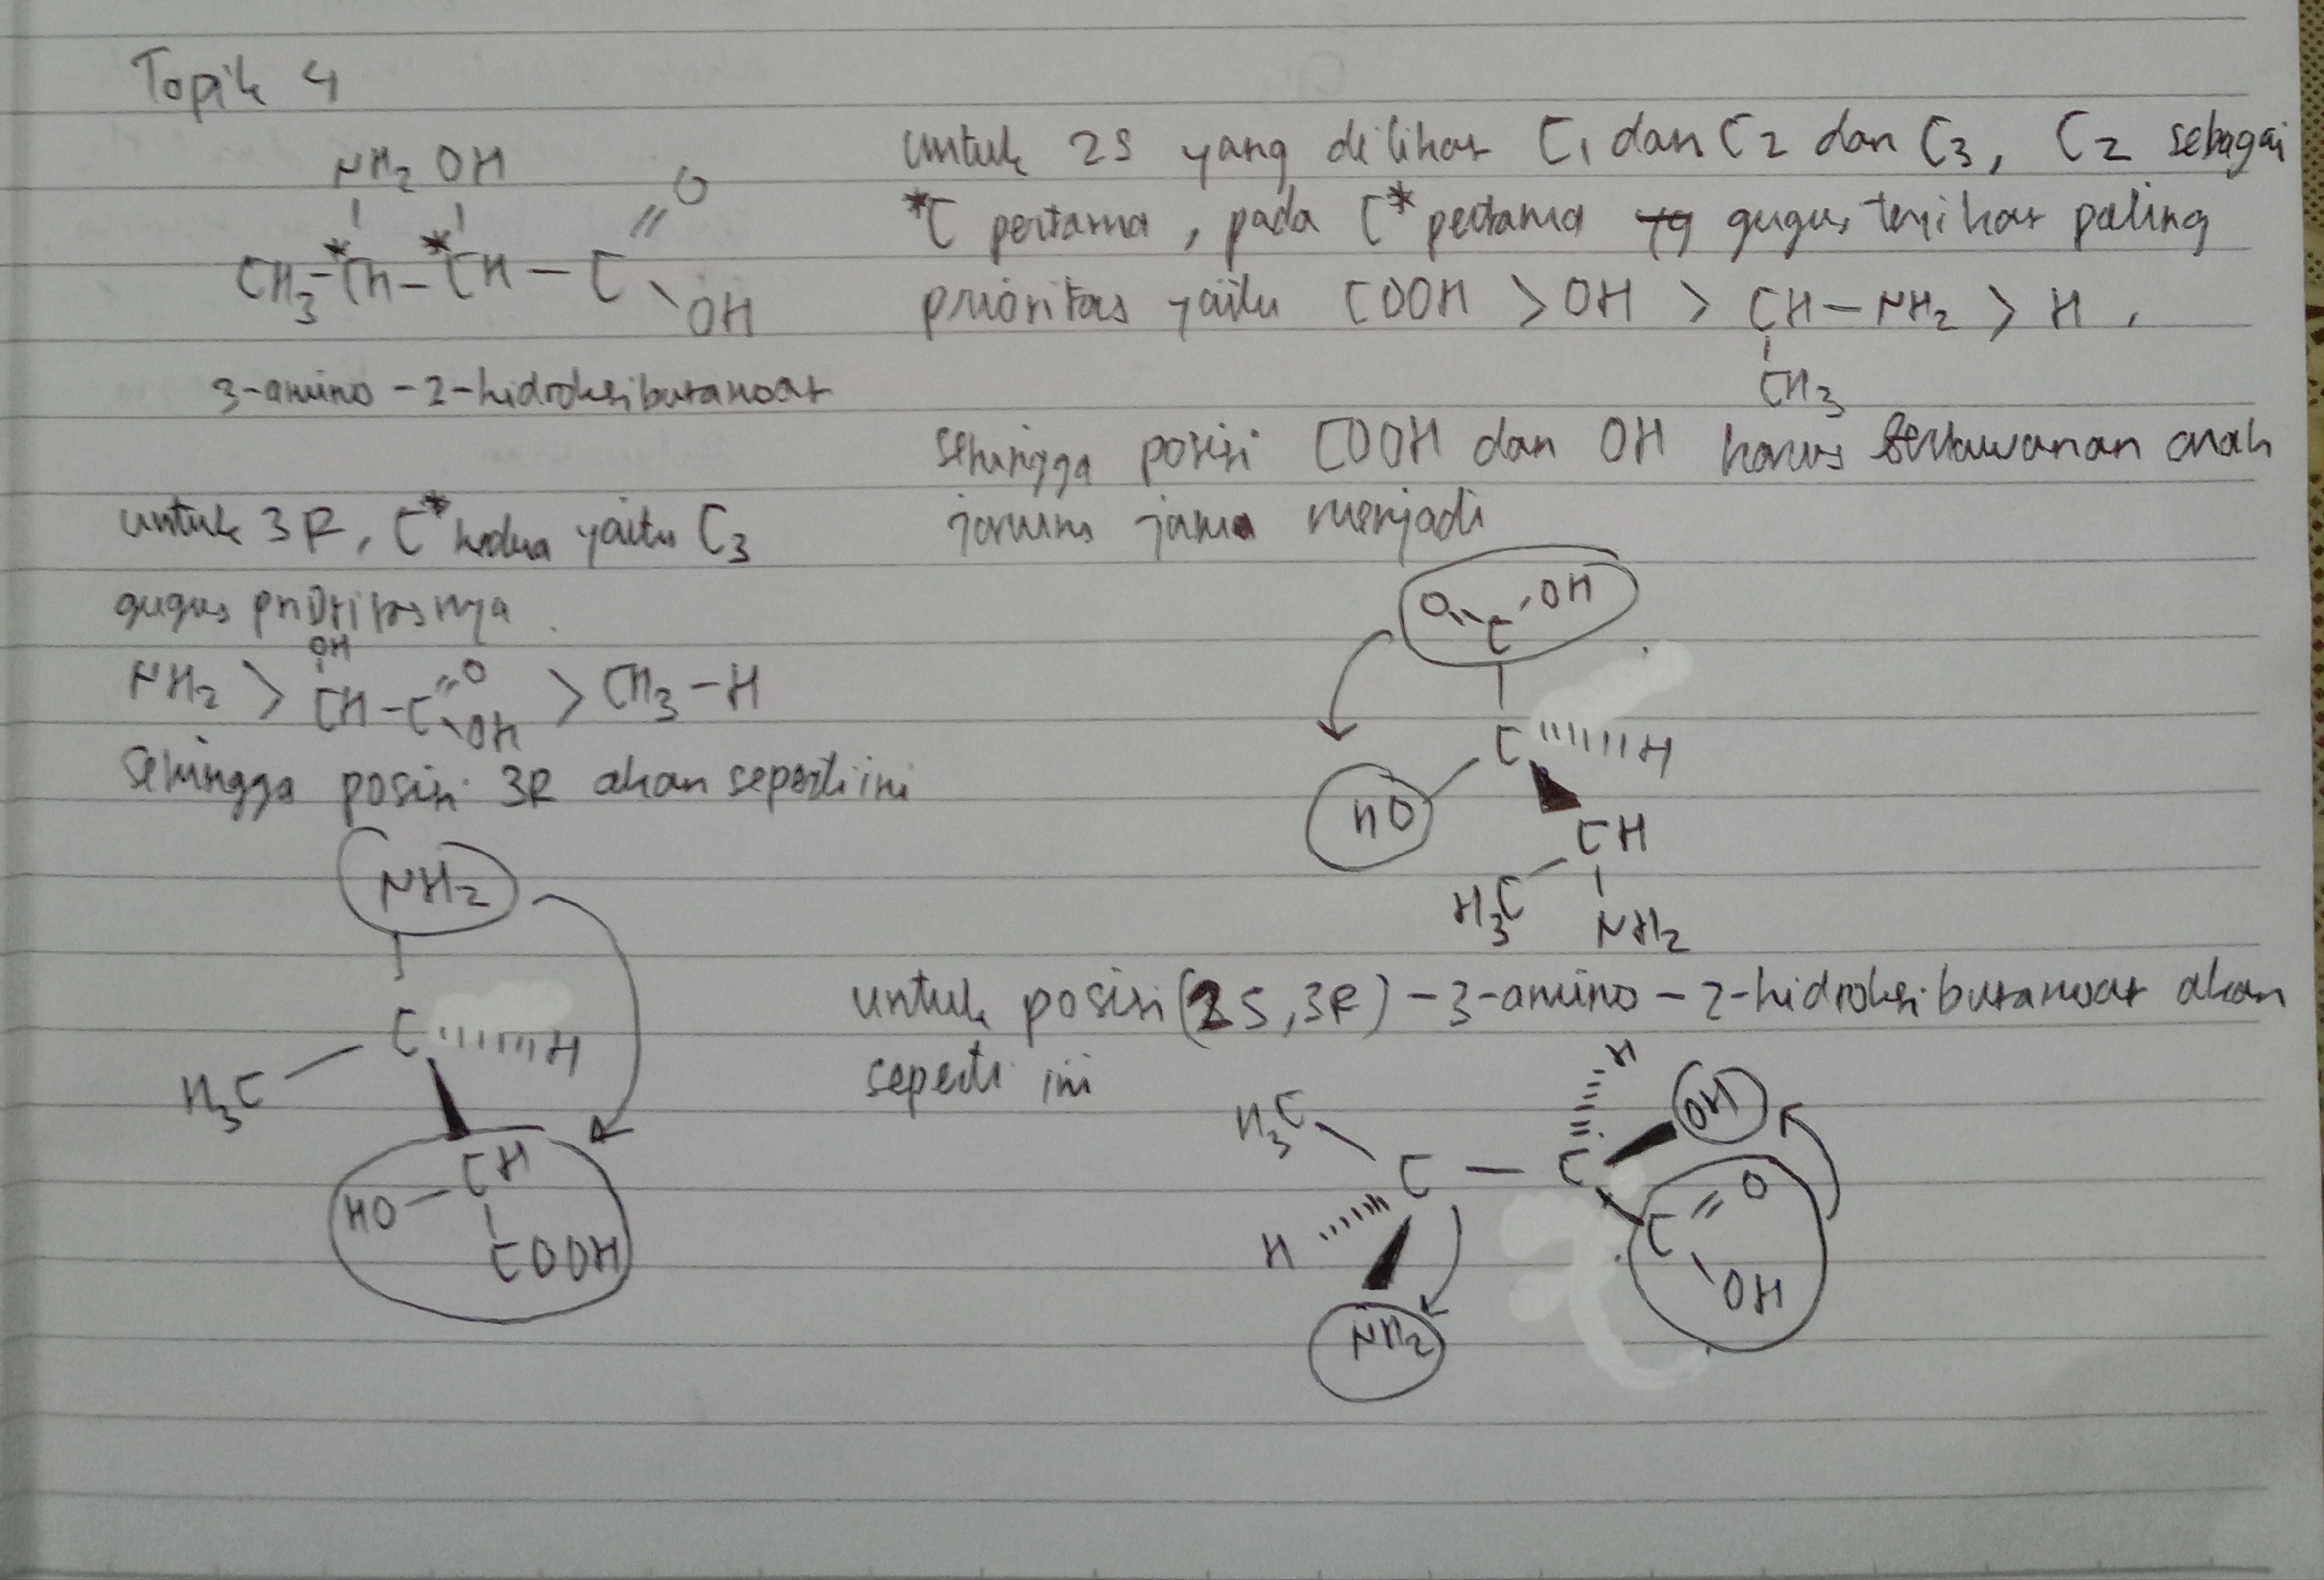 Topik 4
NH2 OH
O
CH3 - *CH - *CH - C
OH
3-amino-2-hidroksibutanoat
untuk 2S yang dilihat C1 dan C2 dan C3, C2 sebagai
*C pertama, pada C* pertama yg gugus terikat paling
prioritas yaitu COOH > OH > CH-NH2 > H,
CH3
sehingga posisi COOH dan OH harus berlawanan arah
jarum jam menjadi
O C OH
C H
HO
CH
H3C
NH2
untuk 3R, C* kedua yaitu C3
gugus prioritasnya
OH
NH2 > CH-C=O > CH3-H
OH
Sehingga posisi 3R akan seperti ini
NH2
C H
H3C
CH
HO
COOH
untuk posisi (2S,3R)-3-amino-2-hidroksibutanoat akan
seperti ini
H
H3C OH
C - C
C=O
H
OH
NH2